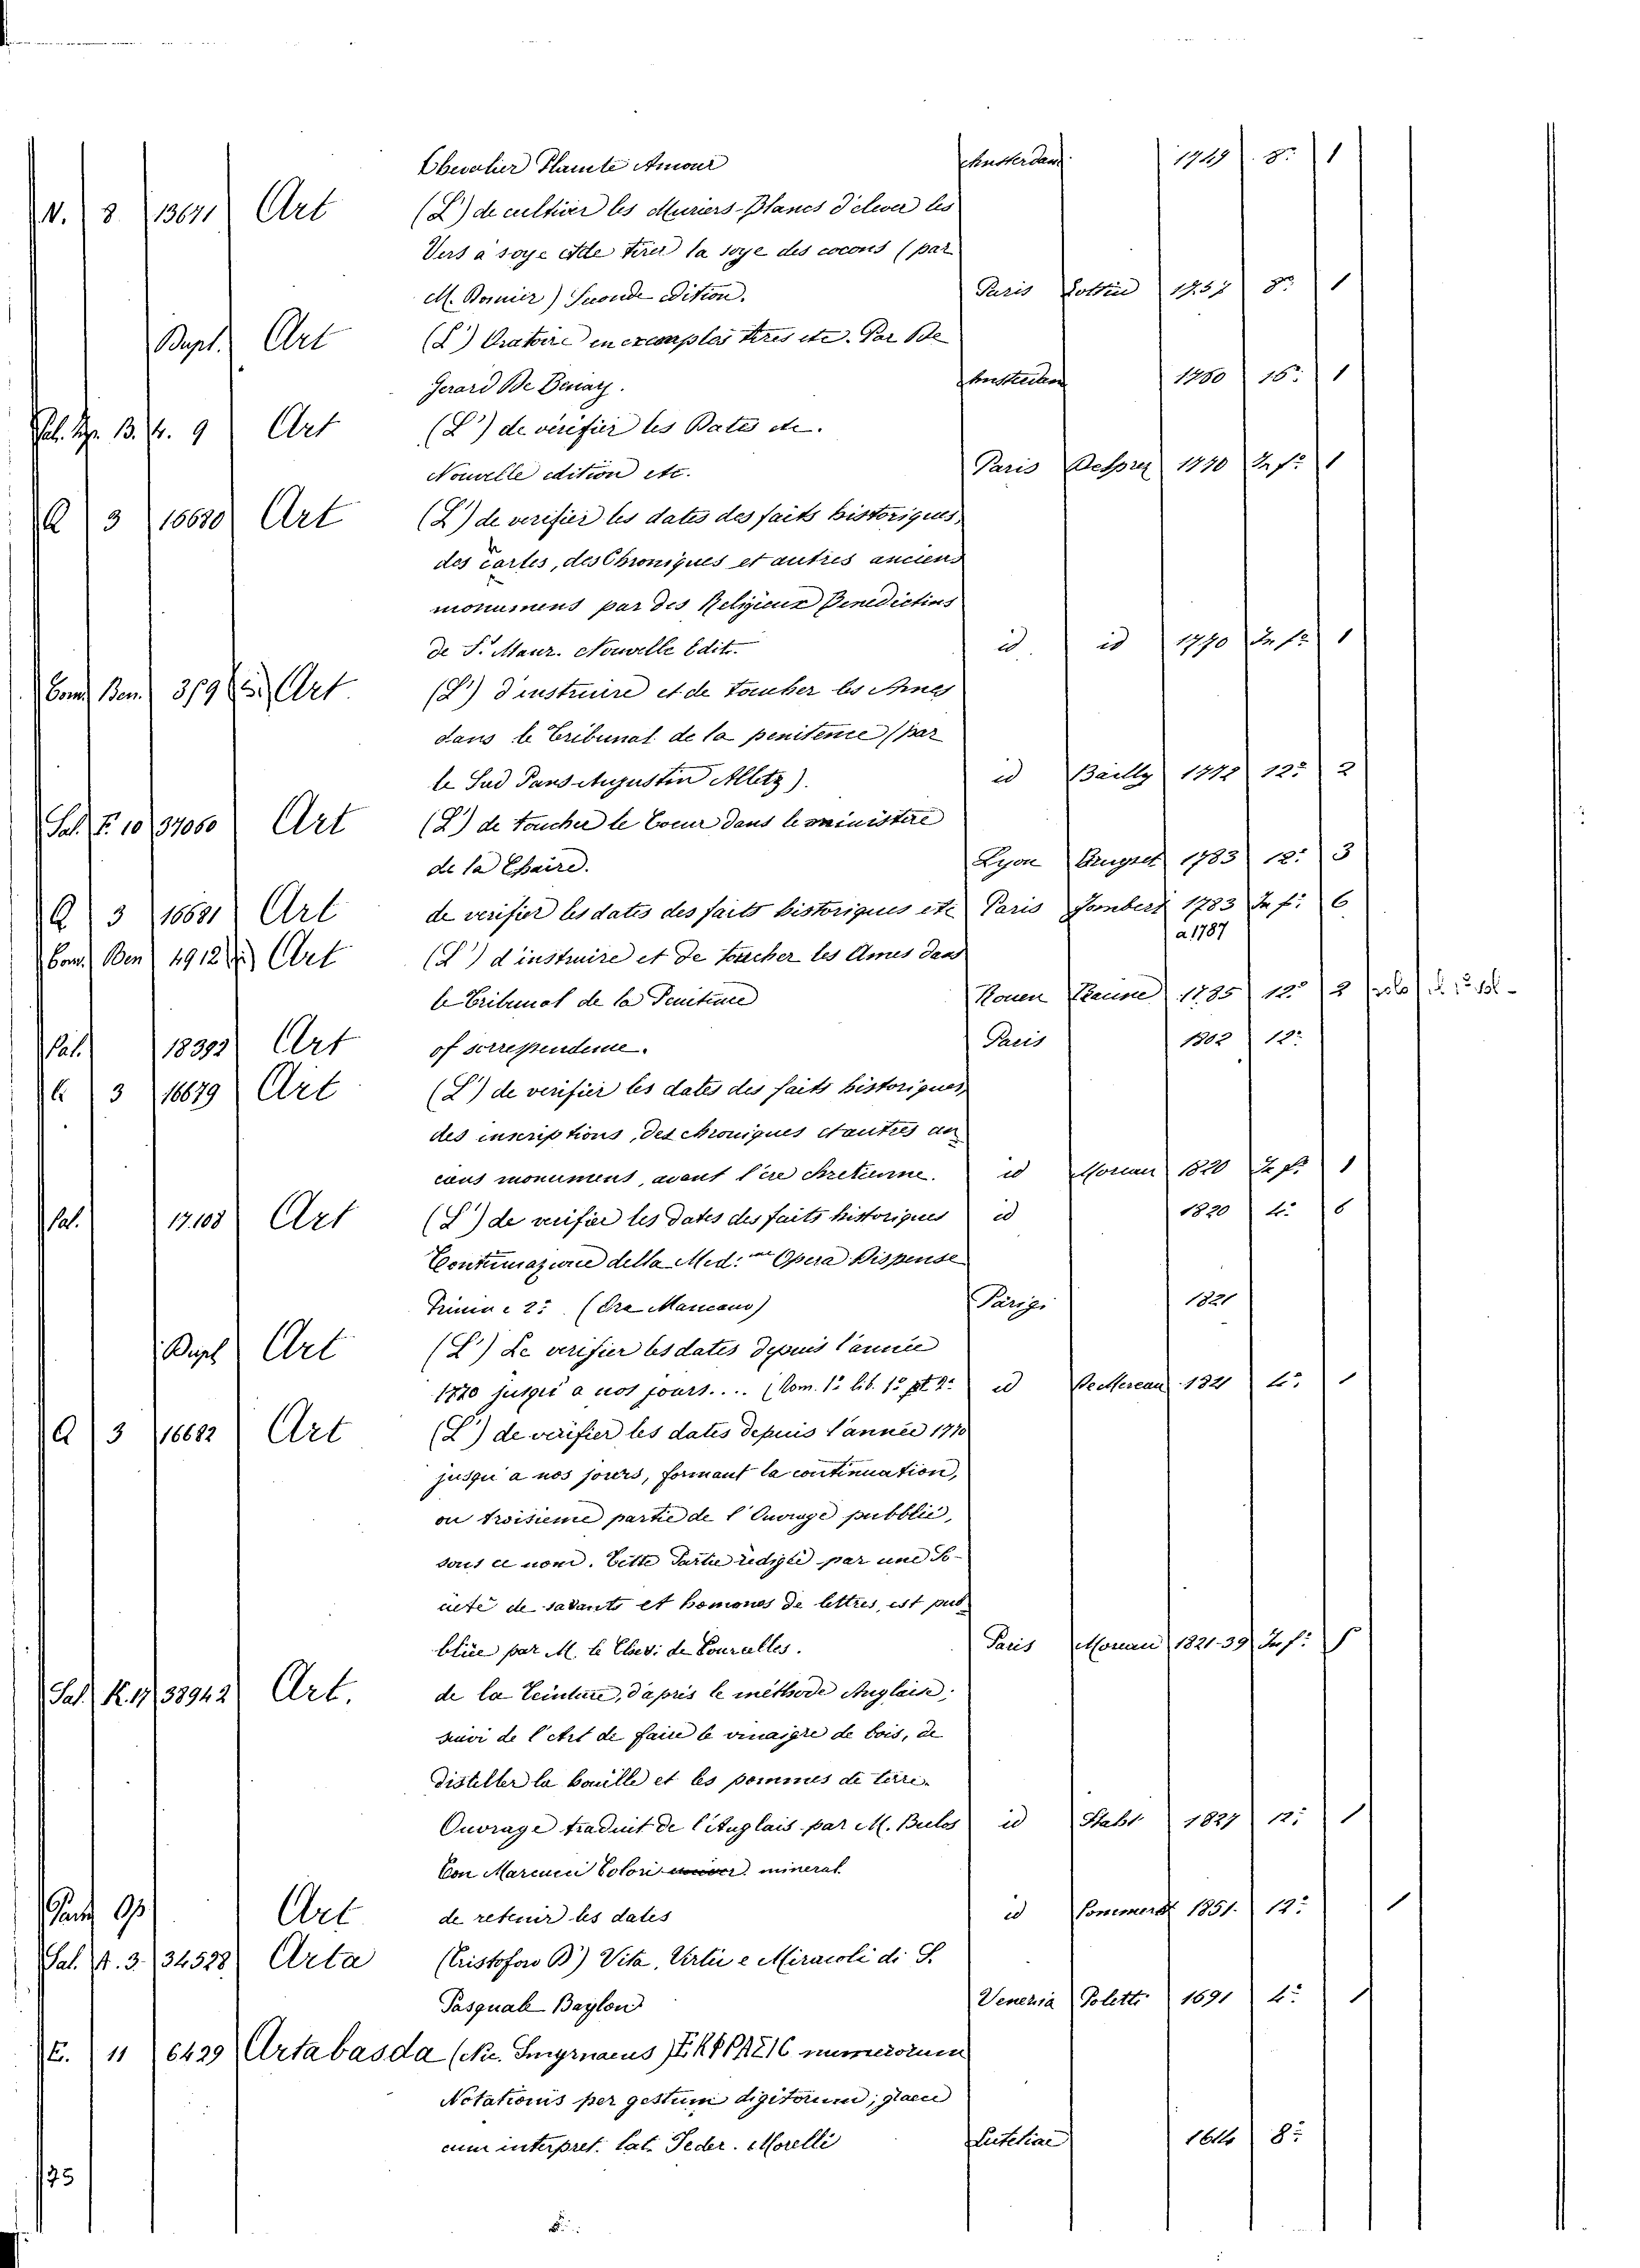 Chevalier Plante Amour Amsterdam 1749 8º 1
N. 8 13671 Art (L') de cultiver les Muriers-Blancs d'elever les
Vers a soye et de tirer la soye des cocons (par
M. Pomier) Seconde edition. Paris Lottin 1757 8º 1
Dupl. Art (L') Oratoire en exemples tires etc. Par De
Gerard De Benay. Amsterdam 1760 16º 1
Art (L') de verifier les Dates etc.
Nouvelle edition etc. Paris Desprez 1770 In fº 1
Q 3 16680 Art (L') de verifier les dates des faits historiques,
des Cartes, des Chroniques et autres anciens
monumens par des Religieux Benedictins
de S. Maur. Nouvelle Edit. id. id 1770 In fº 1
Com. Ben. 319 Art (L') d'instruire et de toucher les Ames
dans le Tribunal de la penitence (par
le Sud Pans Augustin Alletz). id Bailly 1772 12º 2
Sal. F. 10 37060 Art (L') de toucher le Coeur dans le ministere
de la Chaire. Lyon Bruyset 1783 12º 3
Q 3 16681 Art de verifier les dates des faits historiques etc Paris Jombert 1783 In fº 6
a 1787
Com. Ben 4912 Art (L') d'instruire et de toucher les Ames dans
le Tribunal de la Penitence Rouen Racine 1785 12º 2
Pal. 18392 Art of correspondence. Paris 1802 12º
3 16679 Art (L') de verifier les dates des faits historiques,
des inscriptions, des chroniques et autres an
ciens monumens, avant l'ere chretienne. id Moreau 1820 In fº 1
Pal. 17.108 Art (L') de verifier les dates des faits historiques id 1820 4º 6
Continuazione della Med.ma Opera Dispense
Prima e 2ª (Ora Mancano) Parigi 1821
Dupl Art (L') de verifier les dates depuis l'année
1770 jusqu'a nos jours.... (Tom. 1º lib. 1º pt 2ª id 1821 4º 1
Q 3 16682 Art (L') de verifier les dates depuis l'année 1770
jusqu'a nos jours, formant la continuation,
ou troisieme partie de l'Ouvrage pubblié,
sous ce nom. Cette Partie redigée par une So-
cieté de savants et hommes de lettres, est pub
bliée par M. le Chev: de Courcelles. Paris Moreau 1821-39 In fº
Sal. K. 17 38942 Art. de la Teinture, d'apris le méthode Anglaise;
suivi de l'Art de faire le vinaigre de bois, de
distiller la houille et les pommes de terre.
Ouvrage traduit de l'Anglais par M. Bulos id 1827 12º 1
Con Marcuci Colori mineral
Art de retenir les dates id Pommeret 1851. 12º 1
Sal. A. 3. 34528 Arta (Cristoforo D') Vita, Virtù e Miracoli di S.
Pasquale Baylon Venezia Poletti 1691 4º 1
E. 11 6429 Artabasda (Nic. Smyrnaeus) numerorum
Notationis per gestum digitorum; graece
cum interpret. lat. Feder. Morelli Lutetiae 1614 8º